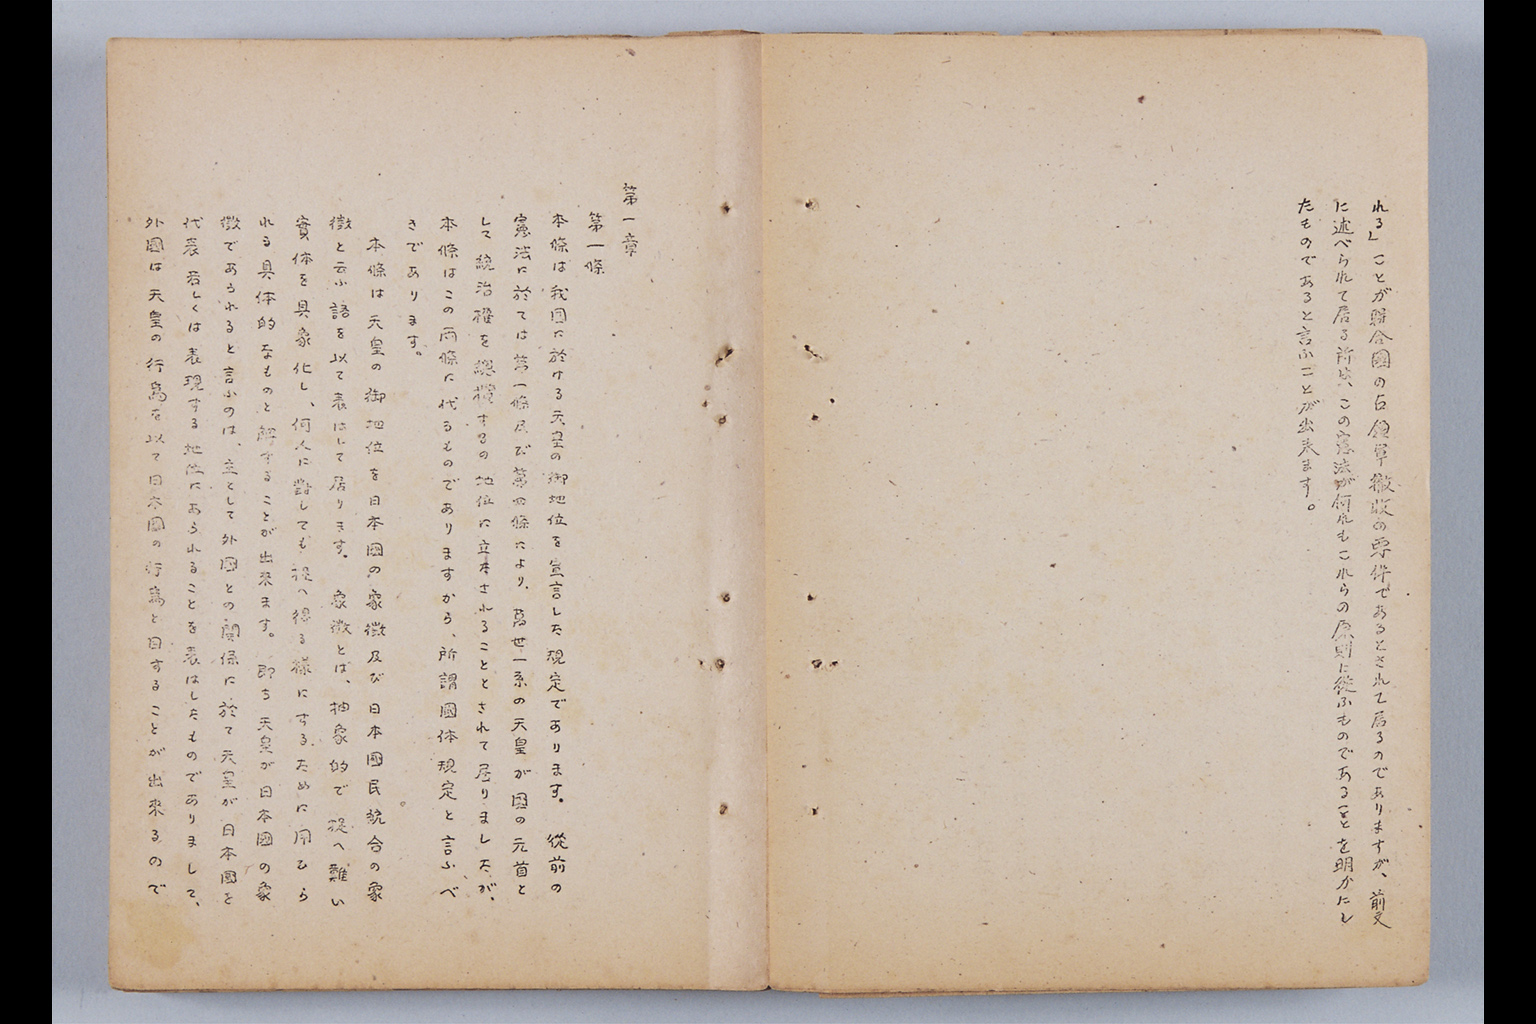 れる」ことが聯合國の占領軍撤收の要件であるとされて居るのでありますが、前文
に述べられて居る所は、この憲法が何れもこれらの原則に從ふものであることを明かにし
たものであると言ふことが出来ます。
第一章
第一條
本條は我國に於ける天皇の御地位を宣言した規定であります。從前の
憲法に於ては第一條及び第四條により、萬世一系の天皇が國の元首と
して統治權を總攬するの地位に立たされることとされて居りましたが、
本條はこの兩條に代るものでありますから、所謂國体規定と言ふべ
きであります。
本條は天皇の御地位を日本國の象徴及び日本國民統合の象
徴と云ふ語を以て表はして居ります。象徴とは、抽象的で捉へ難い
實体を具象化し、何人に對しても捉へ得る様にするために用ひら
れる具体的なものと解することが出来ます。即ち天皇が日本國の象
徴であられると言ふのは、主として外國との關係に於て天皇が日本國を
代表若しくは表現する地位にあられることを表はしたものでありまして、
外國は天皇の行爲を以て日本國の行爲と目することが出來るので